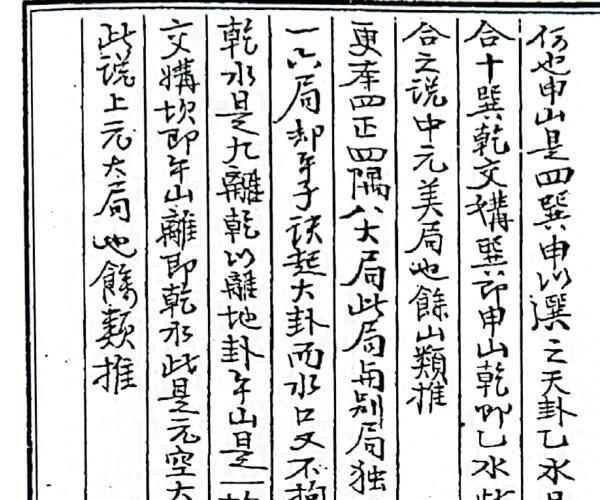 何也申山是四巽申以巽之天卦乙水是
合十巽乾交媾巽即申山乾即乙水此
合之说中元美局也餘山類推
更有四正四隅八大局此局與别局独
一六局却午子诀起大卦而水口又不拘
乾水是九離乾以離地卦午山是一
交媾坎即午山離即乾水此是元空大
此说上元大局也餘類推